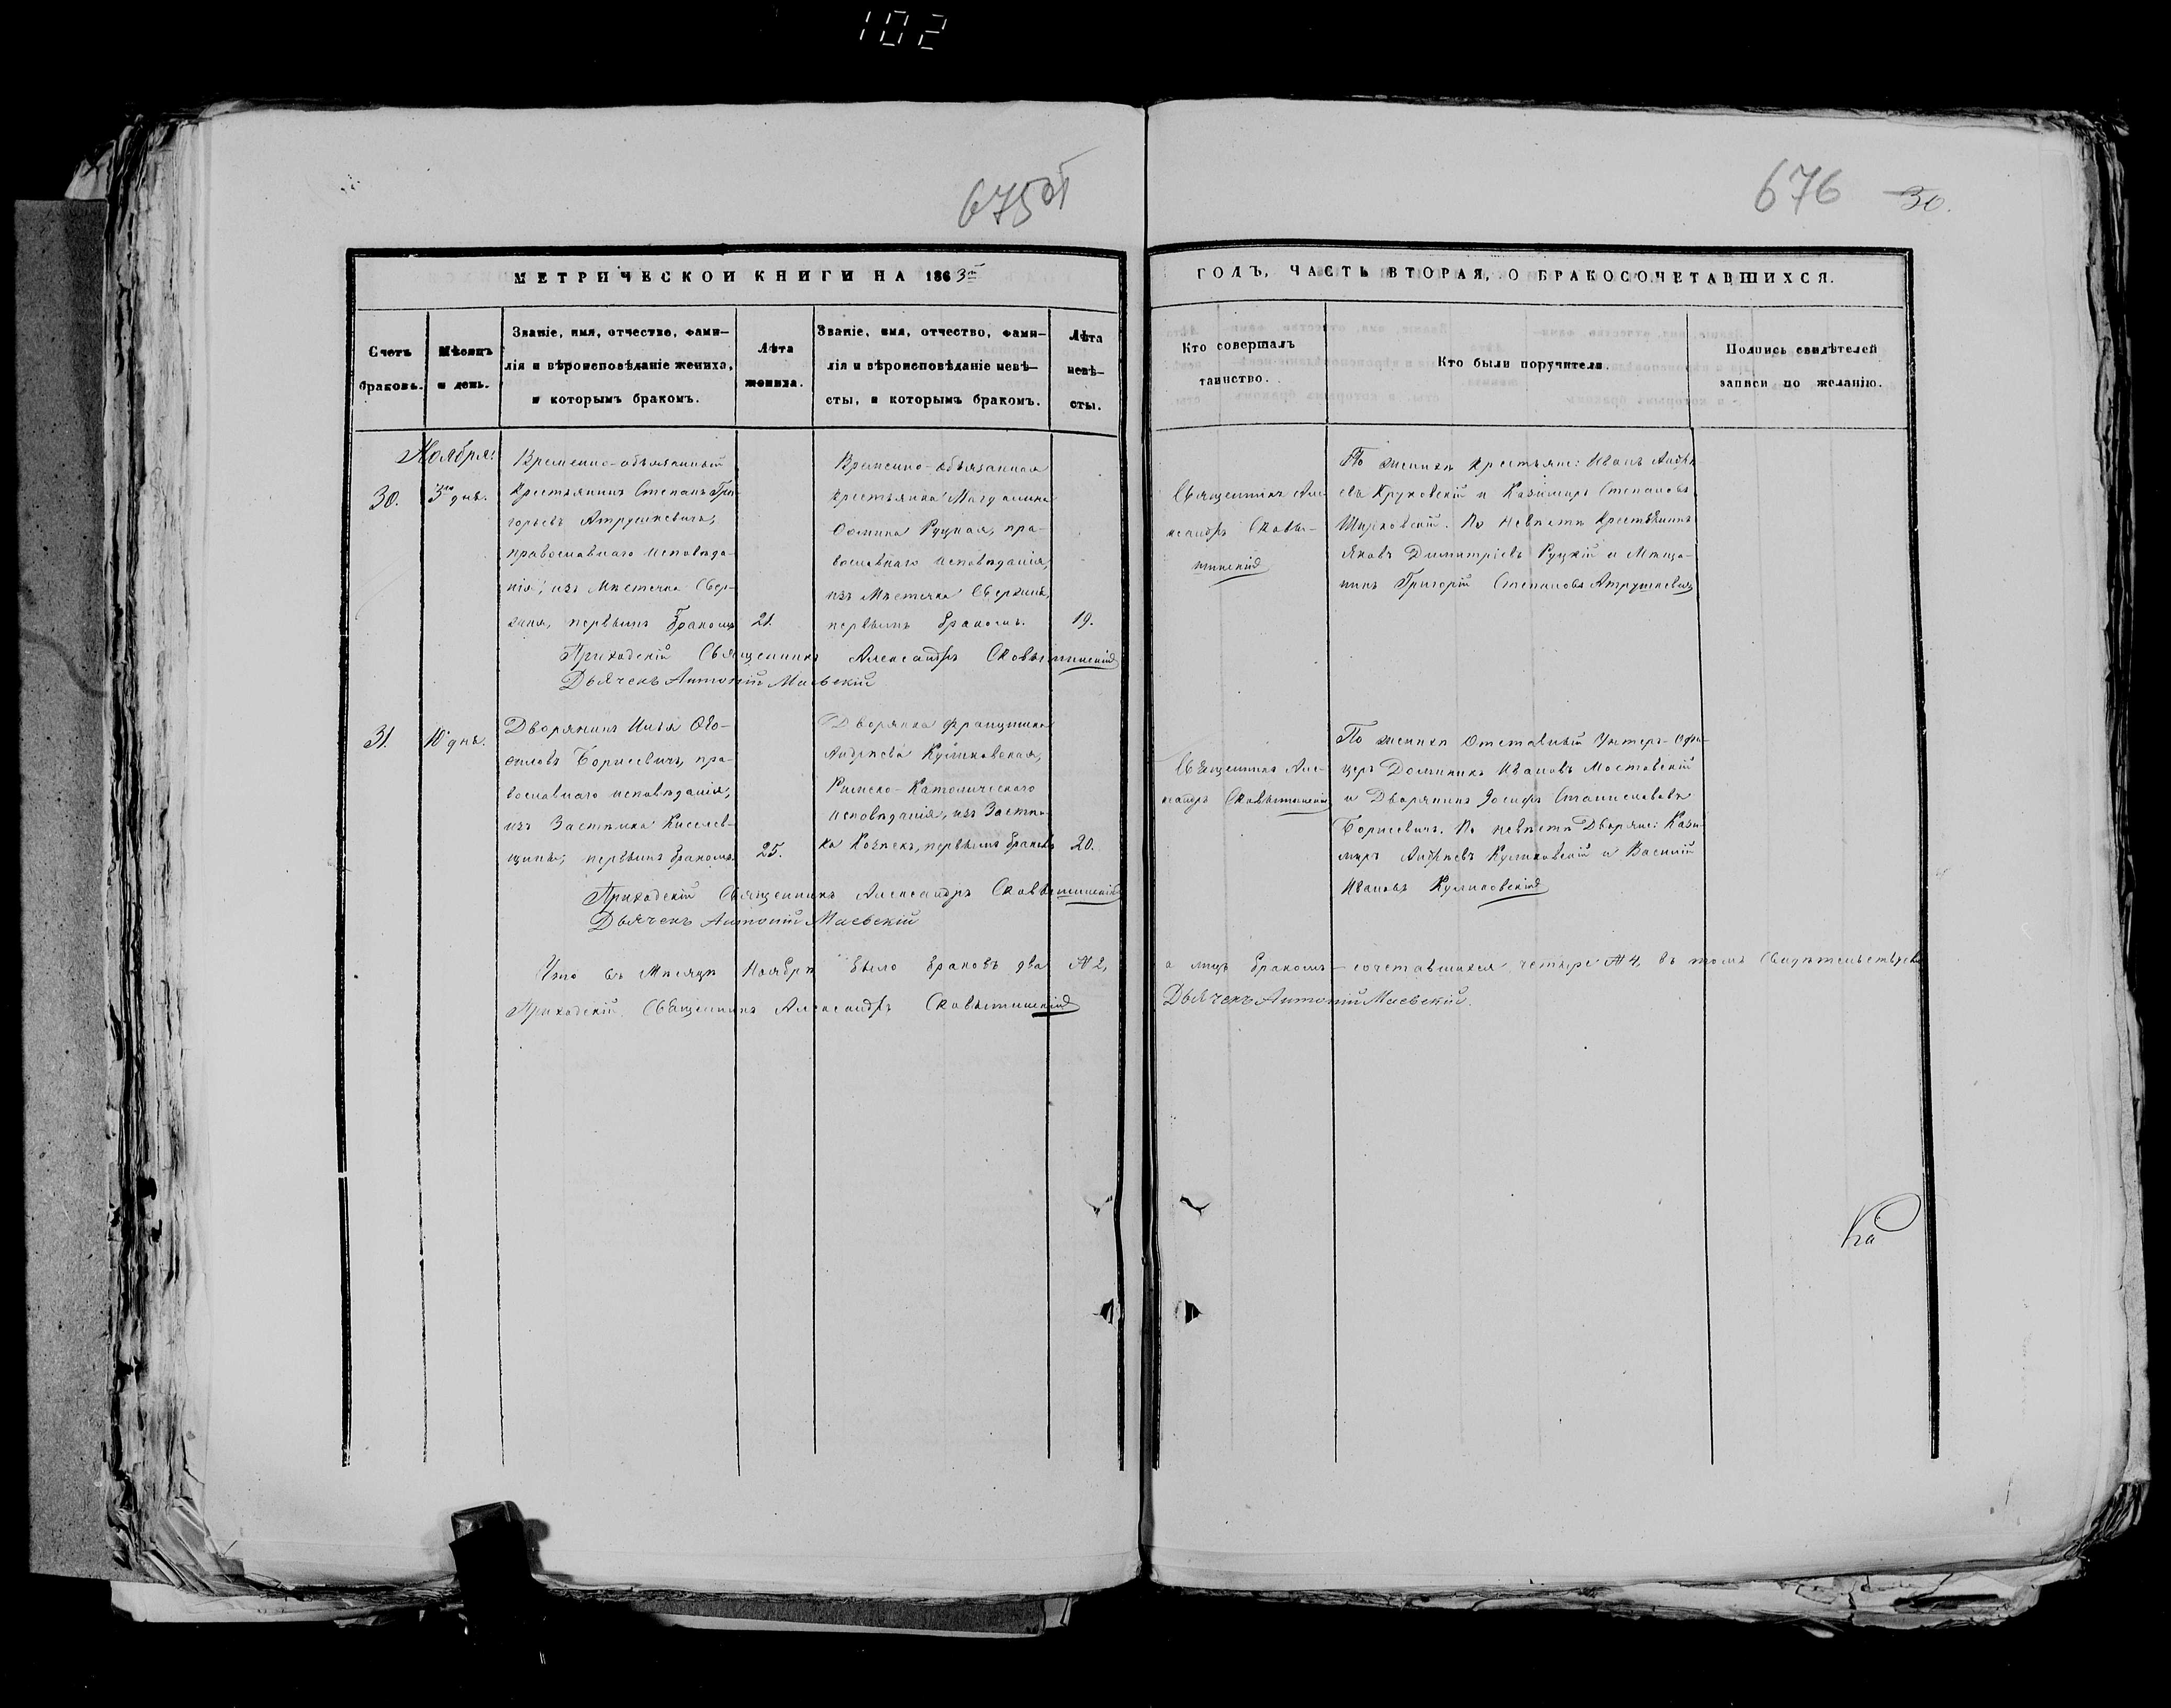 102
675 об
676 30.
МЕТРИЧЕСКОЙ КНИГИ НА 1863й
ГОДЪ, ЧАСТЬ ВТОРАЯ, О БРАКОСОЧЕТАВШИХСЯ.
Счетъ
браковъ.
Мѣсяцъ
и день.
Званіе, имя, отчество, фами-
лія и вѣроисповѣданіе жениха,
и которымъ бракомъ.
Лѣта
жениха.
Званіе, имя, отчество, фами-
лія и вѣроисповѣданіе невѣ-
сты, и которымъ бракомъ.
Лѣта
невѣ-
сты.
Кто совершалъ
таинство.
Кто были поручители.
Подпись свидѣтелей
записи по желанію.
Ноября:
30.
3го дня.
Временно-обязанный
Крестьянинъ Степанъ Гри-
горьевъ Атрушкевичъ,
православнаго исповѣда-
нія, изъ Мѣстечка Свер-
жня, первымъ бракомъ
21.
Временно-обязанная
крестьянка Магдалина
Осипова Руцкая, пра-
вославнаго исповѣданія,
изъ Мѣстечка Свержня,
первымъ бракомъ.
19.
Священникъ Але-
ксандръ Сковы-
шинскій
По женихѣ крестьяне: Иванъ Андре-
евъ Круковскій и Казимиръ Степановъ
По невѣстѣ Крестьянинъ
Яковъ Димитріевъ Руцкій и Мѣща-
нинъ Григорій Степановъ Атрушкевичъ
Приходскій Священникъ Александръ
Дьячекъ Антоній Маевскій
31.
10 дня.
Дворянинъ Илья Ѳео-
филовъ Борисевичъ, пра-
вославнаго исповѣданія,
изъ Застѣнка Киселев-
щины, первымъ бракомъ.
25.
Дворянка Францишка
Андреева Куликовская,
Римско-Католическаго
исповѣданія, изъ Застѣн-
ка первымъ бракомъ
20.
Священникъ Але-
ксандръ
По женихѣ Отставный Унтеръ-Офи-
церъ Доминикъ Ивановъ Мостовскій
и Дворянинъ Іосифъ Станиславовъ
Борисевичъ. По невѣстѣ Дворяне: Кази-
миръ Андреевъ Куликовскій и Василій
Ивановъ Куликовскій
Приходскій Священникъ Александръ
Дьячекъ Антоній Маевскій
Что въ Мѣсяцѣ Ноябрѣ было браковъ два № 2,
а лицъ бракомъ-сочетавшихся четыре № 4, въ томъ свидѣтельствуемъ
Приходскій Священникъ Александръ
Дьячекъ Антоній Маевскій.